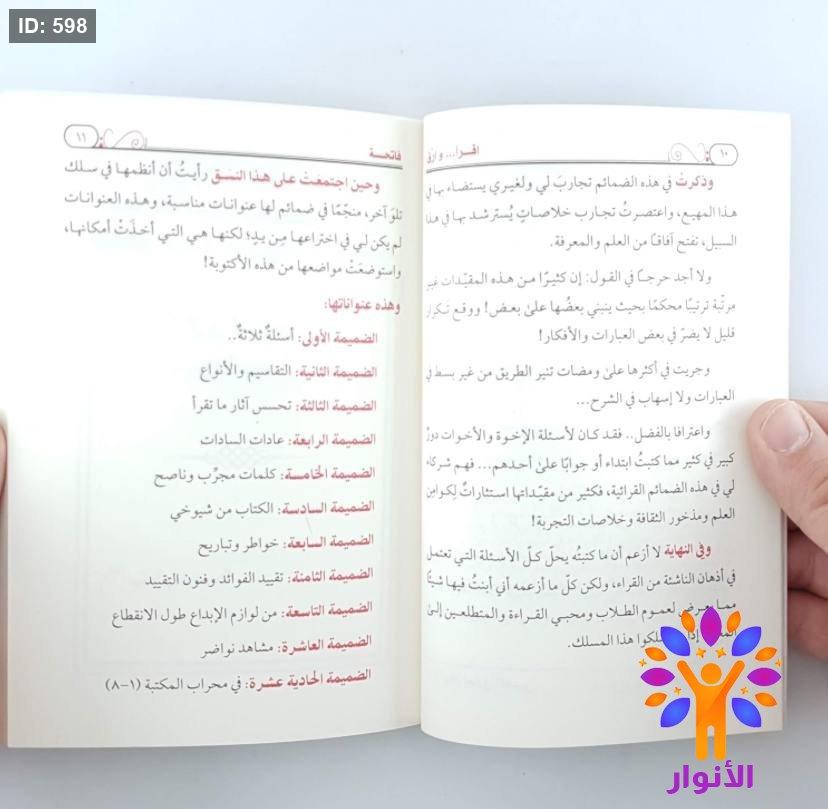 ID: 598
١٠
اقـرا... وارق
وذكرتُ في هذه الضمائم تجاربَ لي ولغيري يستضاء بها في
هذا المهيع، واعتصرتُ تجارب خلاصاتٍ يُسترشد بها في هذا
السبيل، تفتح آفاقا من العلم والمعرفة.
ولا أجد حرجـا في القـول: إن كثيرًا مـن هـذه المقيّـدات غير
مرتّبة ترتيبًا محكمًا بحيث ينبني بعضُها علىٰ بعـض! ووقـع تكرار
قليل لا يضرّ في بعض العبارات والأفكار!
وجريت في أكثرها علىٰ ومضات تنير الطريق من غير بسط في
العبارات ولا إسهاب في الشرح...
واعترافا بالفضل.. فقـد كـان لأسـئلة الإخـوة والأخـوات دورٌ
كبير في كثير مما كتبتُ ابتداء أو جوابًا علىٰ أحدهم... فهم شركاء
لي في هذه الضمائم القرائية، فكثير من مقيّداتها استثاراتٌ لكوامِن
العلم ومذخور الثقافة وخلاصات التجربة!
وفي النهاية لا أزعم أن ما كتبتُه يحلّ كـلّ الأسـئلة التي تعتمل
في أذهان الناشئة من القراء، ولكن كلّ ما أزعمه أني أبنتُ فيها شيئًا
ممـا يعـرض لعمـوم الطـلاب ومحبـي القـراءة والمتطلعـين إلـىٰ
إذا سلكوا هذا المسلك.
١١
فاتحـة
وحين اجتمعتْ على هذا النسق رأيتُ أن أنظمهـا في سـلك
تلوَ آخر، منجّمًا في ضمائم لها عنوانـات مناسـبة، وهـذه العنوانـات
لم يكن لي في اختراعهـا مِـن يـدٍ؛ لكنهـا هـي التـي أخـذتْ أمكانهـا،
واستوضعَتْ مواضعها من هذه الأكتوبة!
وهذه عنواناتها:
الضميمة الأولى: أسئلةٌ ثلاثةٌ..
الضميمة الثانية: التقاسيم والأنواع
الضميمة الثالثة: تحسس آثار ما تقرأ
الضميمة الرابعة: عادات السادات
الضميمة الخامسة: كلمات مجرِّب وناصح
الضميمة السادسة: الكتاب من شيوخي
الضميمة السابعة: خواطر وتباريح
الضميمة الثامنة: تقييد الفوائد وفنون التقييد
الضميمة التاسعة: من لوازم الإبداع طول الانقطاع
الضميمة العاشرة: مشاهد نواضر
الضميمة الحادية عشرة: في محراب المكتبة (١-٨)
الأنوار